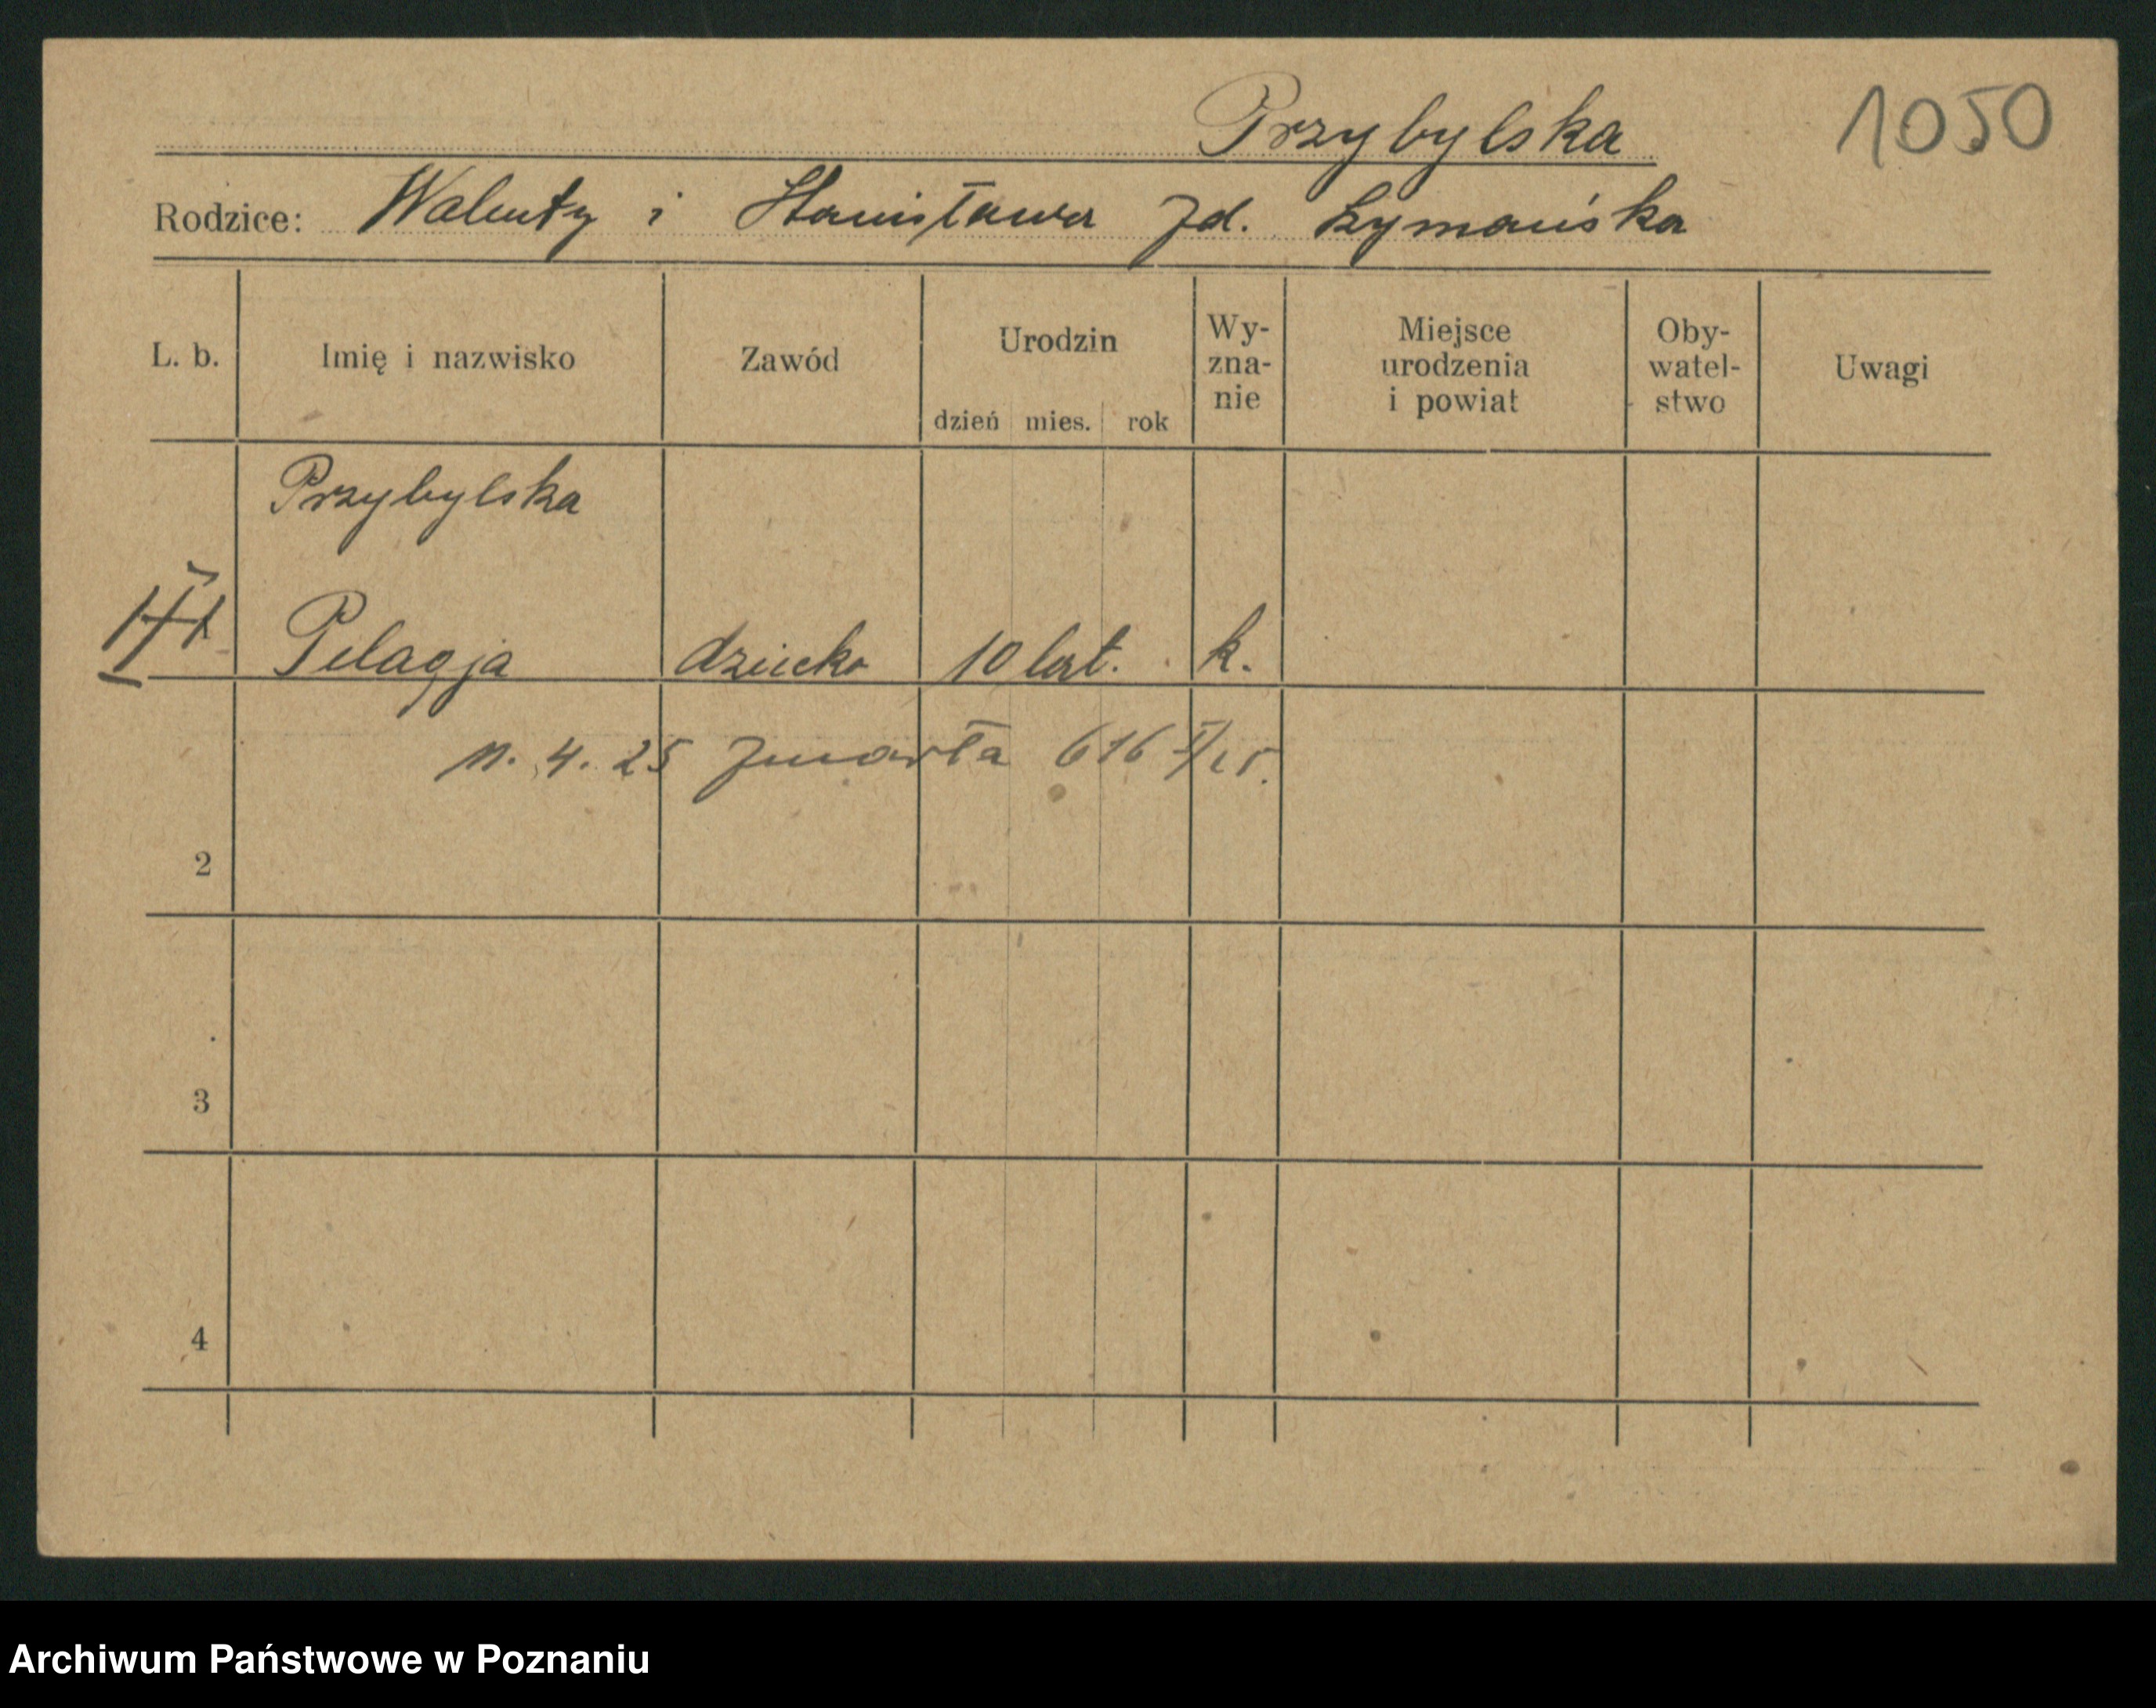 Przybylska
1050
Rodzice: Walenty i Stanisława zd.
L. b.
Imię i nazwisko
Zawód
Urodzin
dzień mies. rok
Wy-
zna-
nie
Miejsce
urodzenia
i powiat
Oby-
watel-
stwo
Uwagi
Przybylska
Pelagja dziecko 10 lat. k.
4. 25 zmarła 616
2
3
4
Archiwum Państwowe w Poznaniu